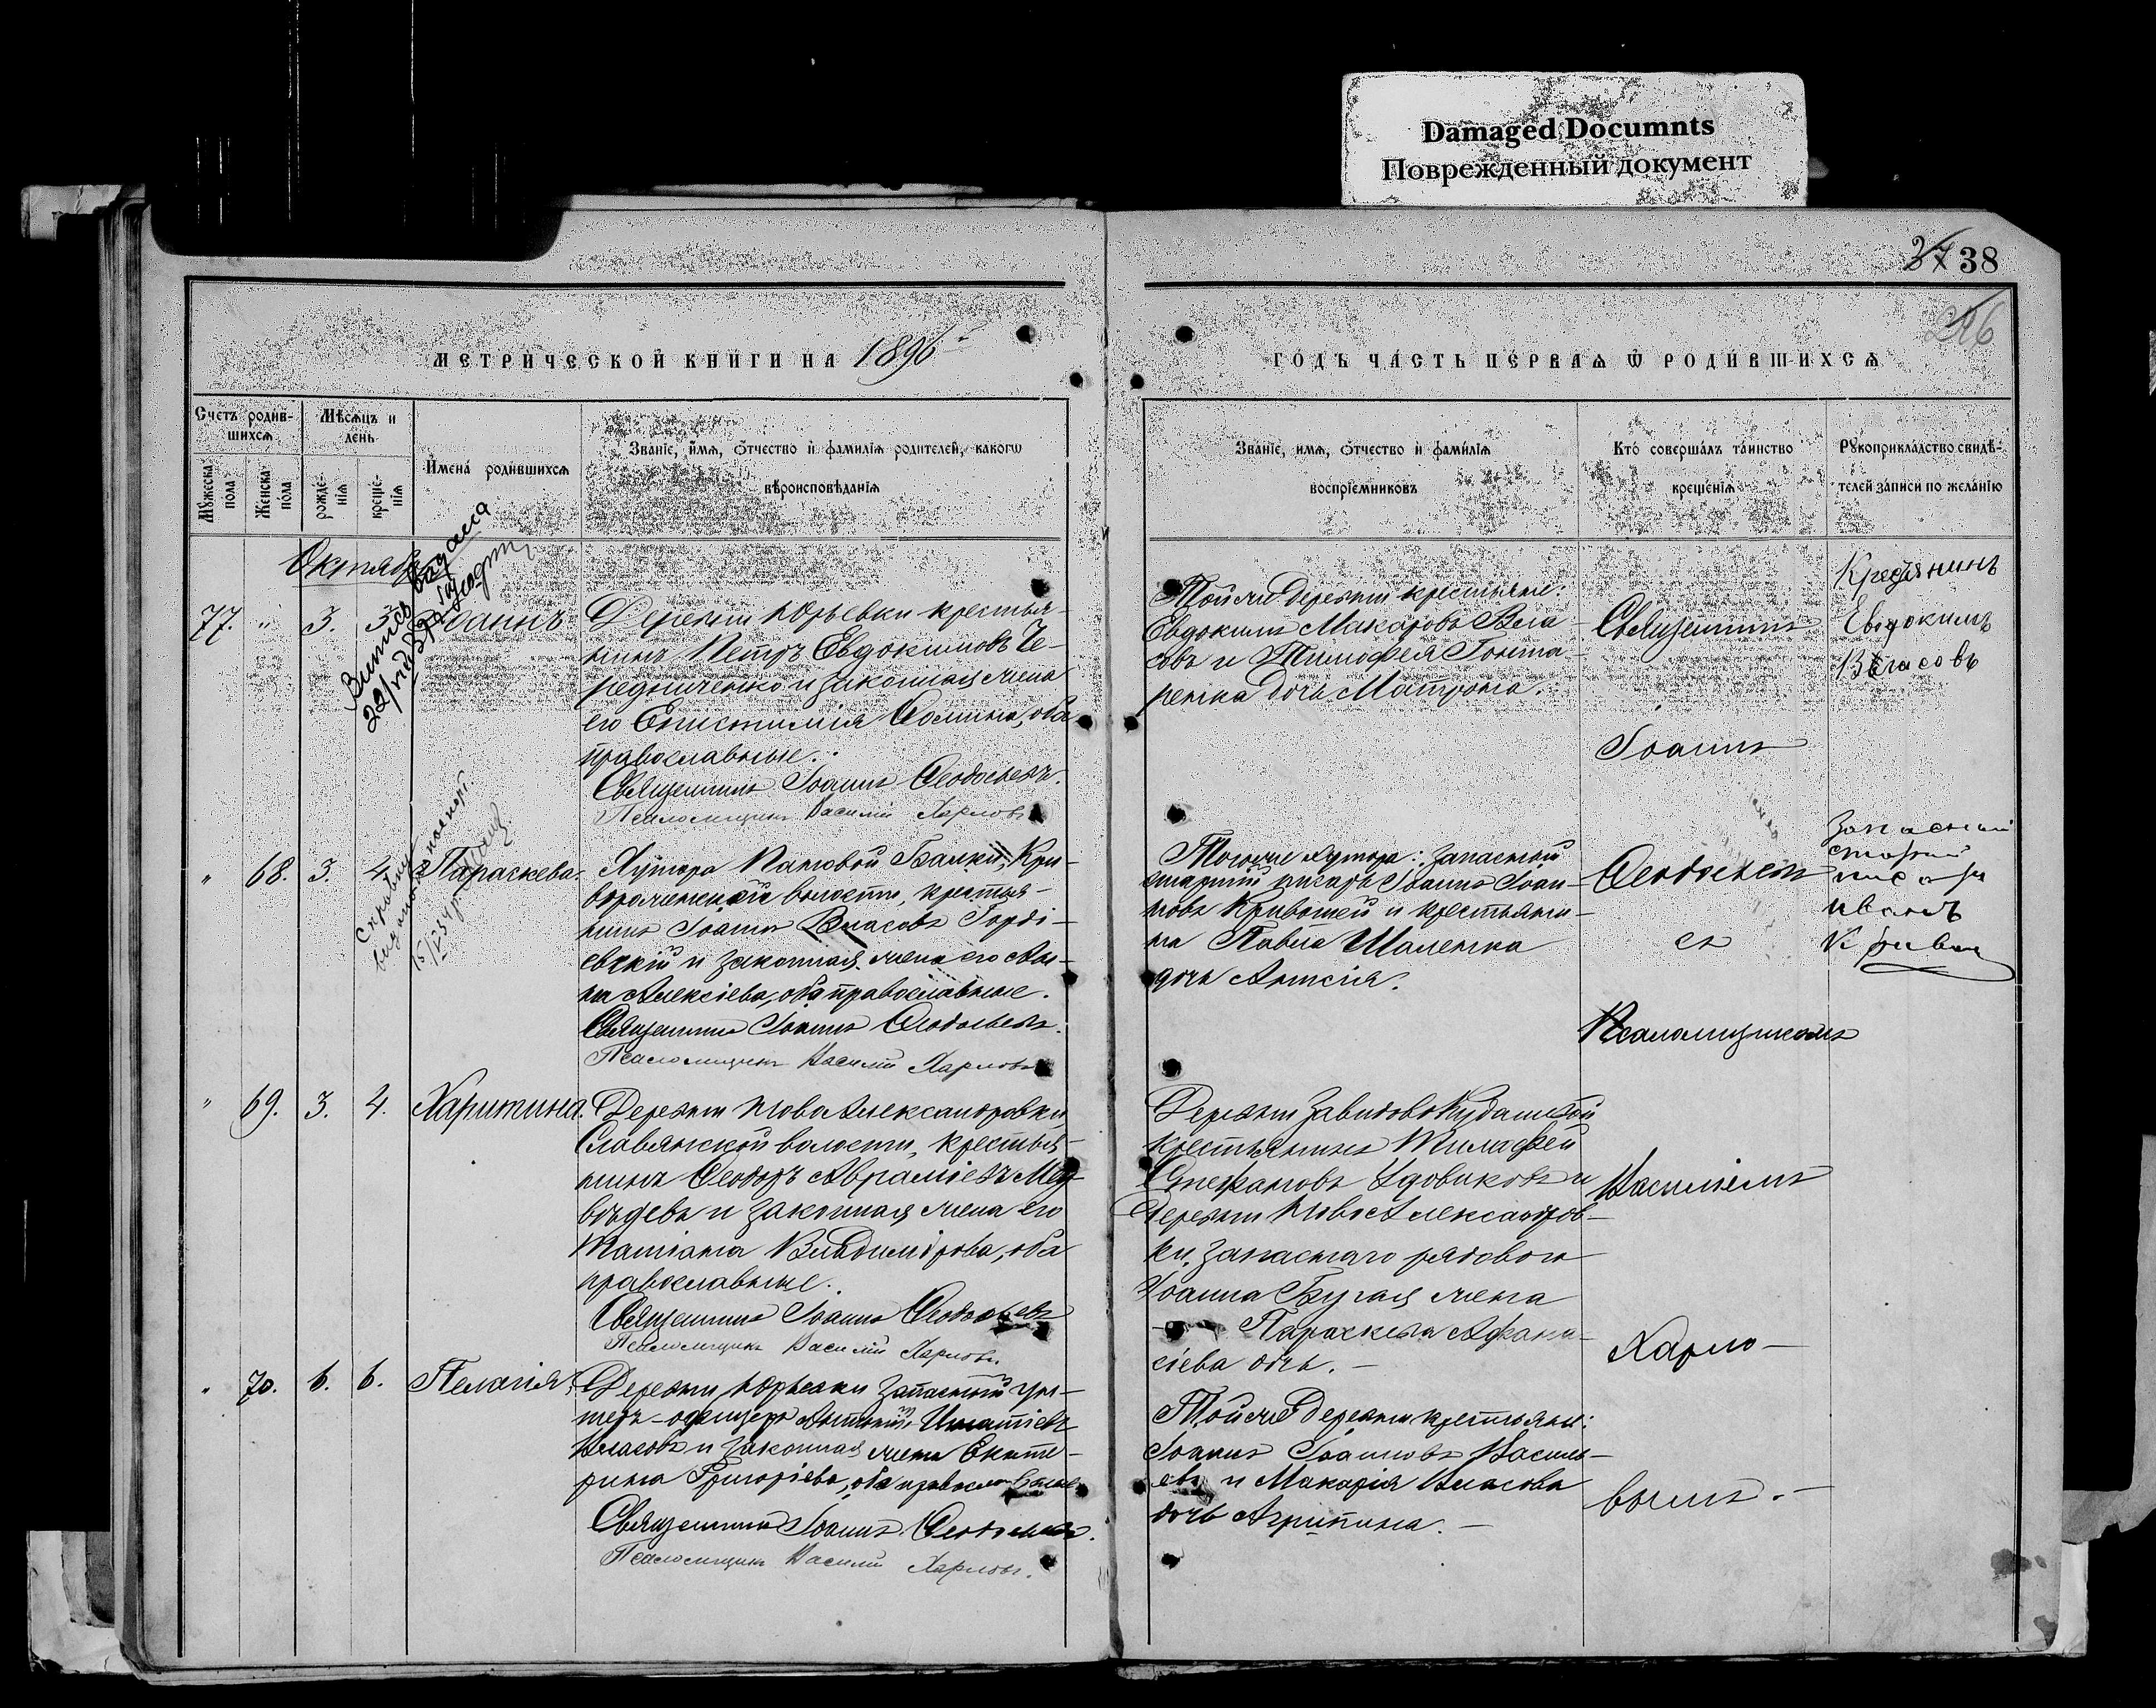 Damaged Documnts
Поврежденный документ
37 38
216
МЕТРИЧЕСКОЙ КНИГИ НА 1896
ГОДЪ ЧАСТЬ ПЕРВАѦ Ѿ РОДИВШИХСѦ
Счетъ родив-
шихсѧ
Мѣсѧцъ и
день
Мꙋжеска
пола
Женска
пола
рожде-
нїѧ
креще-
нїѧ
Имена родившихсѧ
Званїе, имѧ, ѻтчество и фамилїѧ родителей, какогѡ
вѣроисповѣданїѧ
Званїе, имѧ, ѻтчество и фамилїѧ
воспрїемниковъ
Кто совершалъ таинство
крещенїѧ
Рꙋкоприкладство свидѣ-
телей записи по желанїю
Октябрь
77. " 3. 3. Іоаннъ
Деревни Юрьевки крестья-
нинъ Петръ Евдокимовъ Че-
редниченко и законная жена
его Епистимія Ѳомина, оба
православные.
Священникъ Іоаннъ Ѳеодосьевъ.
Псаломщикъ Василій Харловъ
Тойже деревни крестьяне:
Евдокимъ Макаровъ Вла-
совъ и Тимофея Гонта-
ренка дочь Матрона.
Священникъ
Іоаннъ
Крестянинъ
Евдокимъ
Власовъ
Выпись выдана
" 68. 3. 4. Параскева.
Хутора Балки, Кри-
волости, крестья-
нинъ Іоаннъ Власовъ Горді-
евскій и законная жена его Ан-
на Алексіева, оба православные.
Священникъ Іоаннъ Ѳеодосьевъ.
Псаломщикъ Василій Харловъ
Тогоже хутора: запасный
старшій писарь Іоаннъ Іоан-
новъ Кривошей и крестьяни-
на Павла Шаленка
дочь Анисія.
Ѳеодосьевъ
съ
Псаломщикомъ
Запасный
старшій
писарь
иванъ
" 69. 3. 4. Харитина.
Деревни Ново Александровки,
Славянской волости, крестья-
нинъ Ѳеодоръ Авраміевъ Мед-
вѣдевъ и законная жена его
Татіана Владимірова, оба
православные.
Священникъ Іоаннъ Ѳеодосьевъ
Псаломщикъ Василій Харловъ
Деревни Завидово Кудашевой
крестьянинъ Тимофей
Стефановъ Удовиковъ и
деревни Ново Александров-
ки, запаснаго рядового
Іоанна Бугая жена
Параскева Афана-
сіева дочь.
Василіемъ
Харло-
" 70. 6. 6. Пелагія.
Деревни Юрьевки запасный ун-
теръ-офицеръ Антоній Игнатіевъ
Власовъ и законная жена Екате-
рина Григоріева, оба православные
Священникъ Іоаннъ Ѳеодосьевъ.
Псаломщикъ Василій Харловъ.
Тойже деревни крестьяне:
Іоаннъ Іоанновъ Василь-
евъ и Макарія Власова
дочь Агрипина.
вымъ.